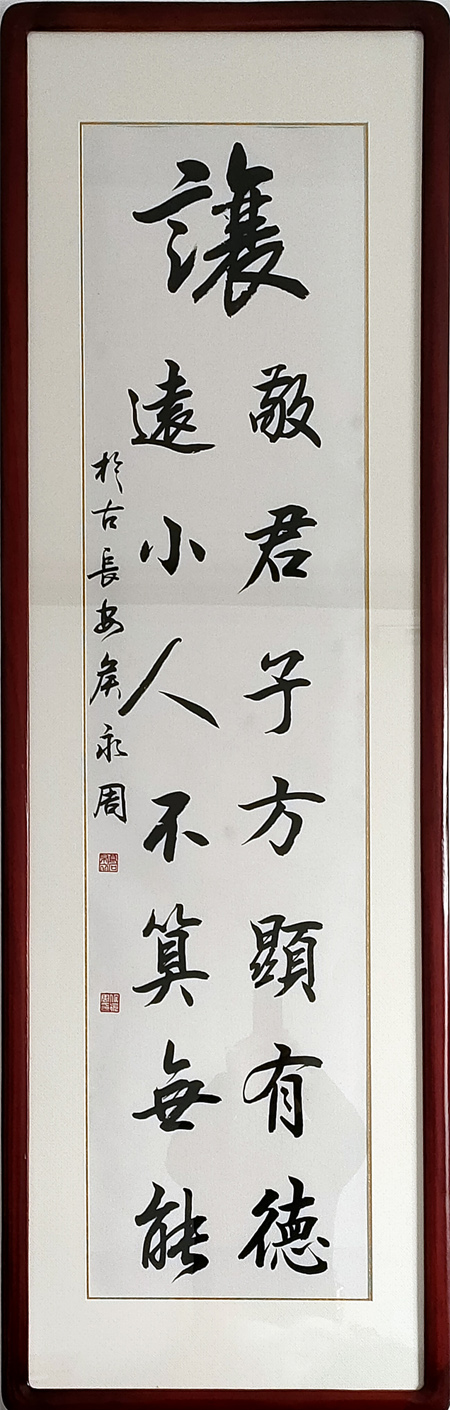 讓
敬君子方顯有德
遠小人不算無能
於古長安侯永周